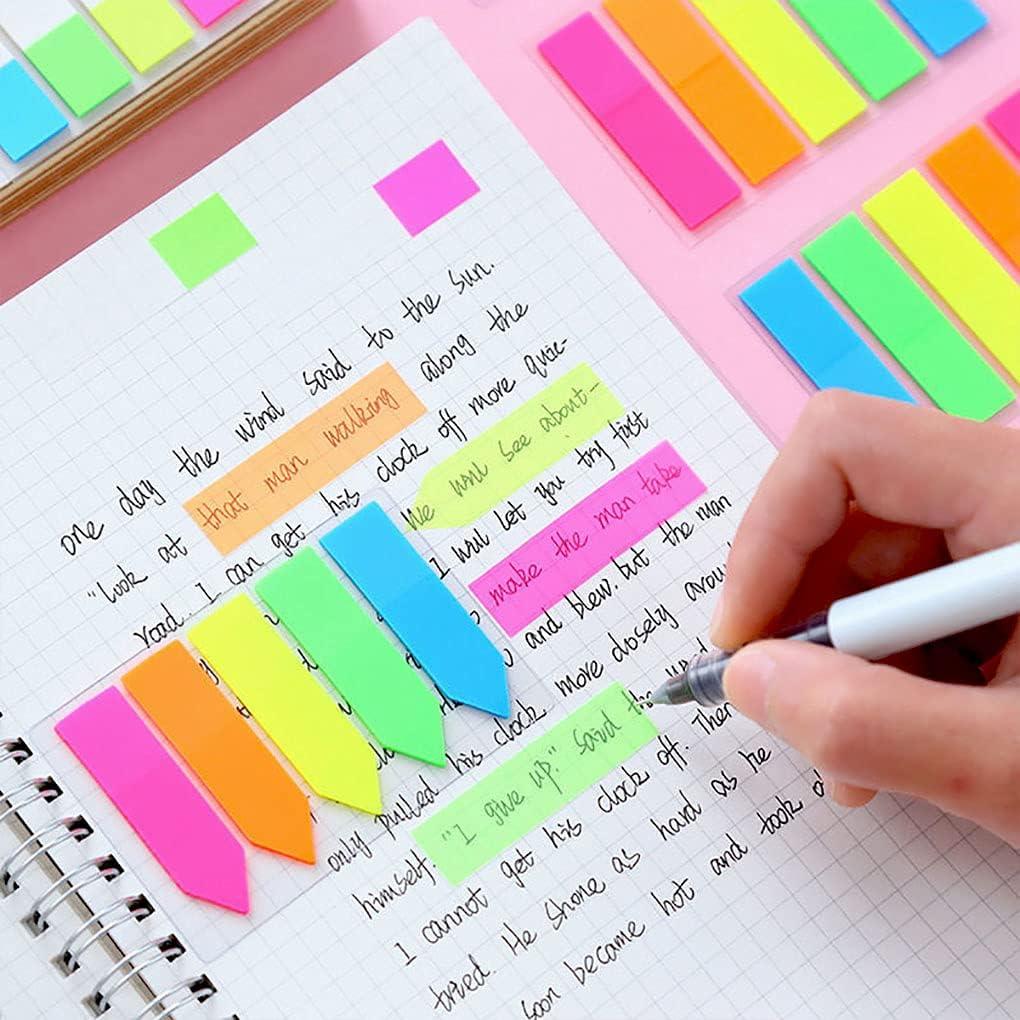 one day the wind said to the sun.
"Look at that man walking along the
road. I can get his clock off more quic-
We will see about—
I will let you try first
make the man take
and blew. but the man
only pulled his clock more closely
himself. "I give up." said the
I cannot get his clock off.
tried. He shone as hard as he
soon became hot and took